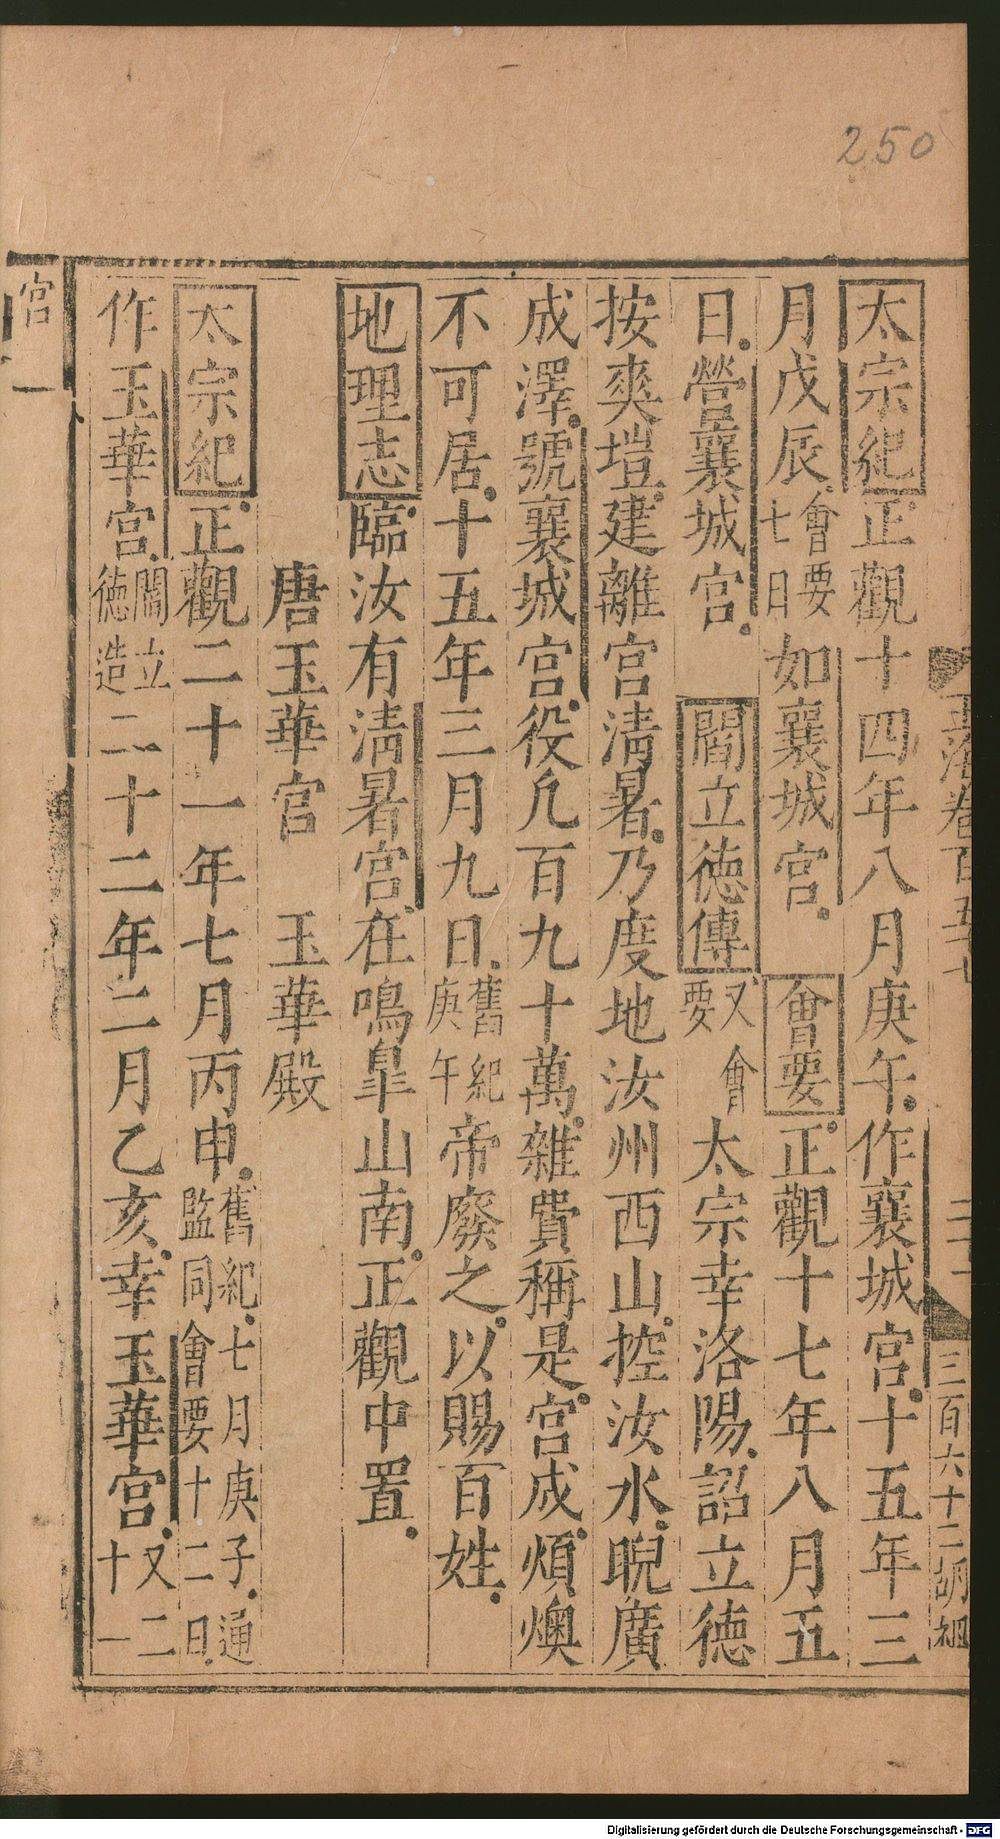 250
太宗紀正觀十四年八月庚午作襄城宮十五年三
月戊辰會要七日如襄城宮會要正觀十七年八月五
日營襄城宮閻立德傳又會要太宗幸洛陽詔立德
按爽塏建離宮清暑乃度地汝州西山控汝水睨廣
成澤號襄城宮役凡百九十萬雜費稱是宮成煩燠
不可居十五年三月九日舊紀庚午帝廢之以賜百姓
地理志臨汝有清暑宮在鳴皐山南正觀中置
唐玉華宮 玉華殿
太宗紀正觀二十一年七月丙申舊紀七月庚子通監同會要十二日
作玉華宮閻立德造二十二年二月乙亥幸玉華宮又二十一
玉海卷百五十七
三百六十二胡
宮一
Digitalisierung gefördert durch die Deutsche Forschungsgemeinschaft - DFG